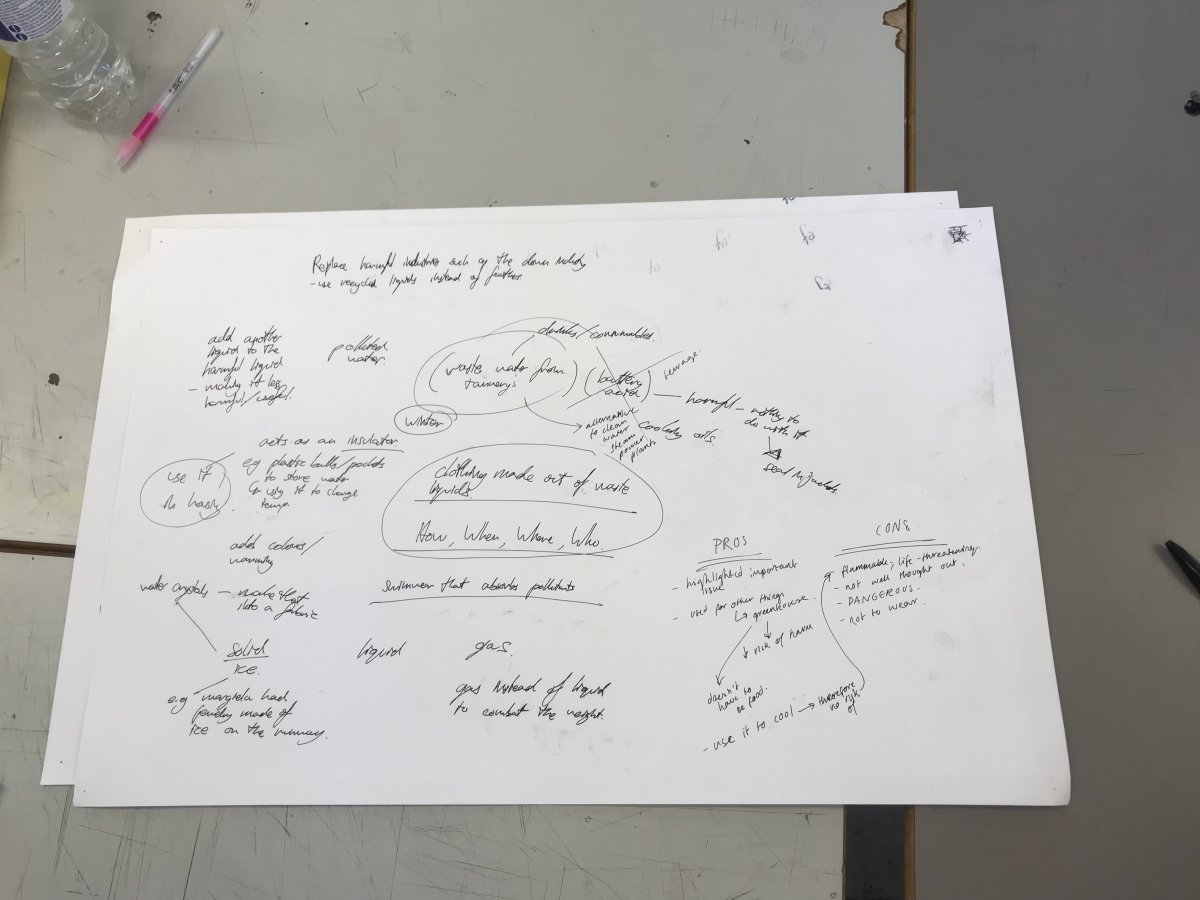 Replace harmful industries such as the down industry
- use recycled liquids instead of feathers.
add another
liquid to the
harmful liquid
- making it less
harmful/useful.
polluted
water.
drinks/consumables.
(waste water from
tannerys)
(battery
acid)
sewage.
harmful - nothing to
do with it
alternative
to clean
water
steam
power
plants
cooking oils
winter
acts as an insulator
eg plastic balls/pockets
to store water
↳ using it to change
temp.
use it
in
clothing made out of waste
liquids
How, When, Where, Who
add colours/
warning
water crystals - make that
into a fabric.
swimwear that absorbs pollutants
solid
ice.
liquid
gas.
e.g margiela had
jewelry made of
ice on the runway.
gas instead of liquid
to combat the weight.
PROS
- highlighted important
issue
- used for other things
↳ greenhouse.
↓ risk of harm
doesn't
have to
be food.
- use it to cool → therefore
no risk
of
CONS
flammable; life-threatening.
- not well thought out.
- DANGEROUS.
- not to wear.
BIC